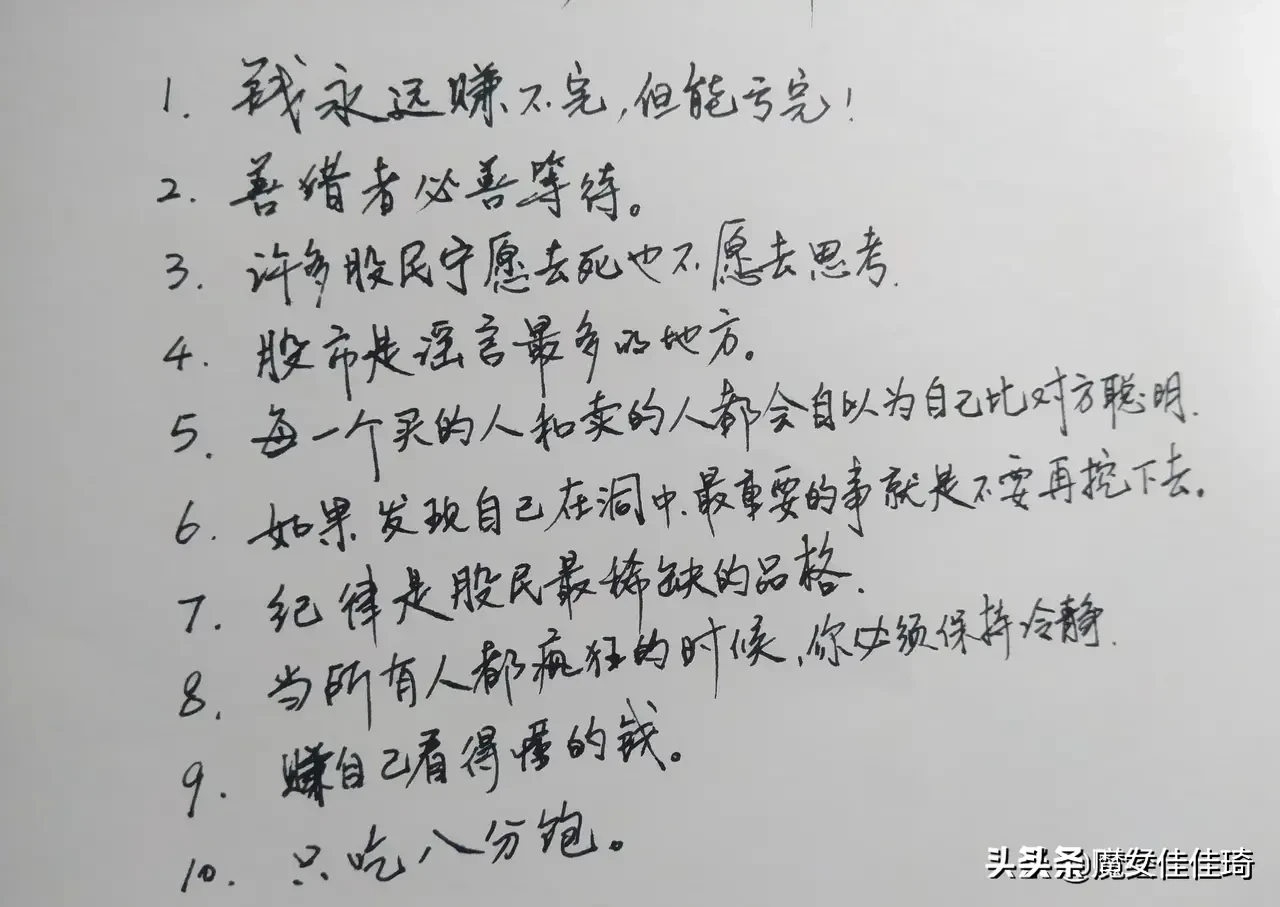 1. 钱永远赚不完,但能亏完!
2. 善猎者必善等待。
3. 许多股民宁愿去死也不愿去思考.
4. 股市是谣言最多的地方。
5. 每一个买的人和卖的人都会自以为自己比对方聪明.
6. 如果发现自己在洞中、最重要的事就是不要再挖下去。
7. 纪律是股民最稀缺的品格.
8. 当所有人都疯狂的时候,你必须保持冷静.
9. 赚自己看得懂的钱。
10. 只吃八分饱。
头条@魔女佳佳琦